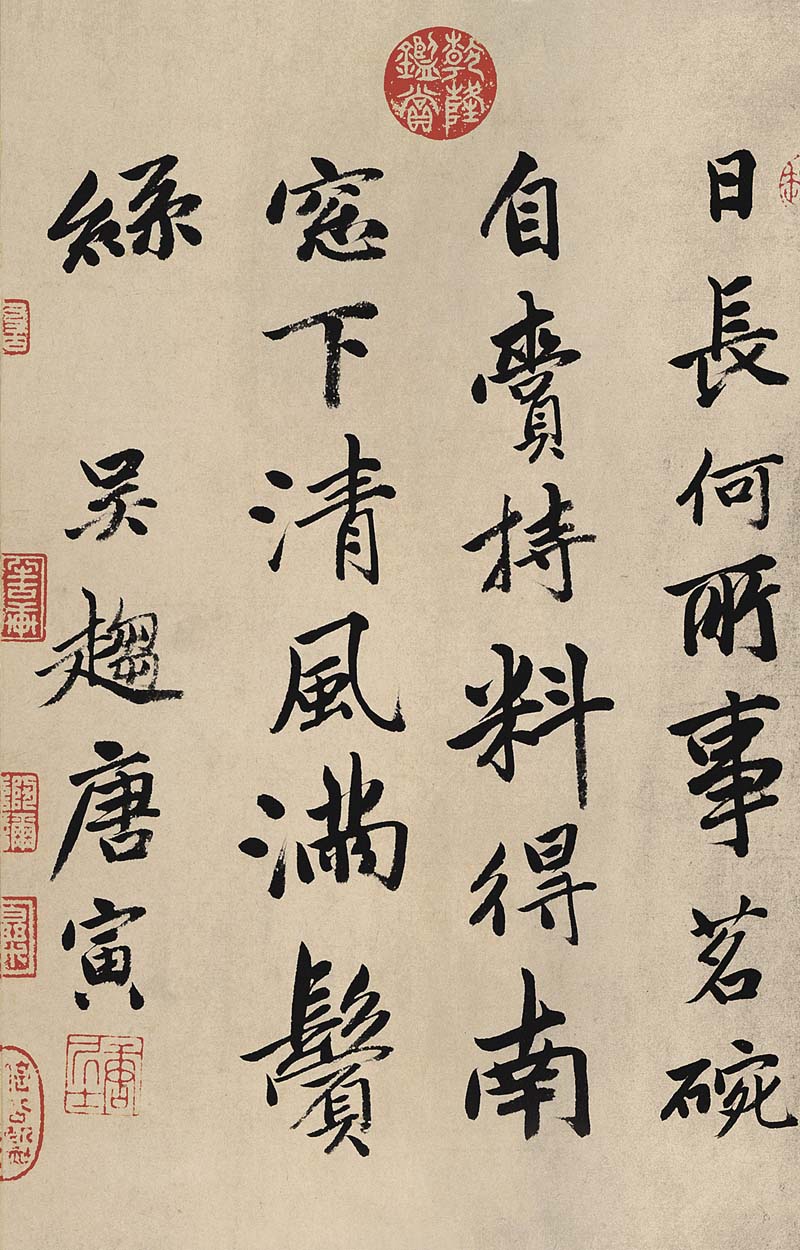 日長何所事茗碗
自賷持料得南
窓下清風滿鬢
絲　吳趨唐寅
乾隆鑑賞
唐居士